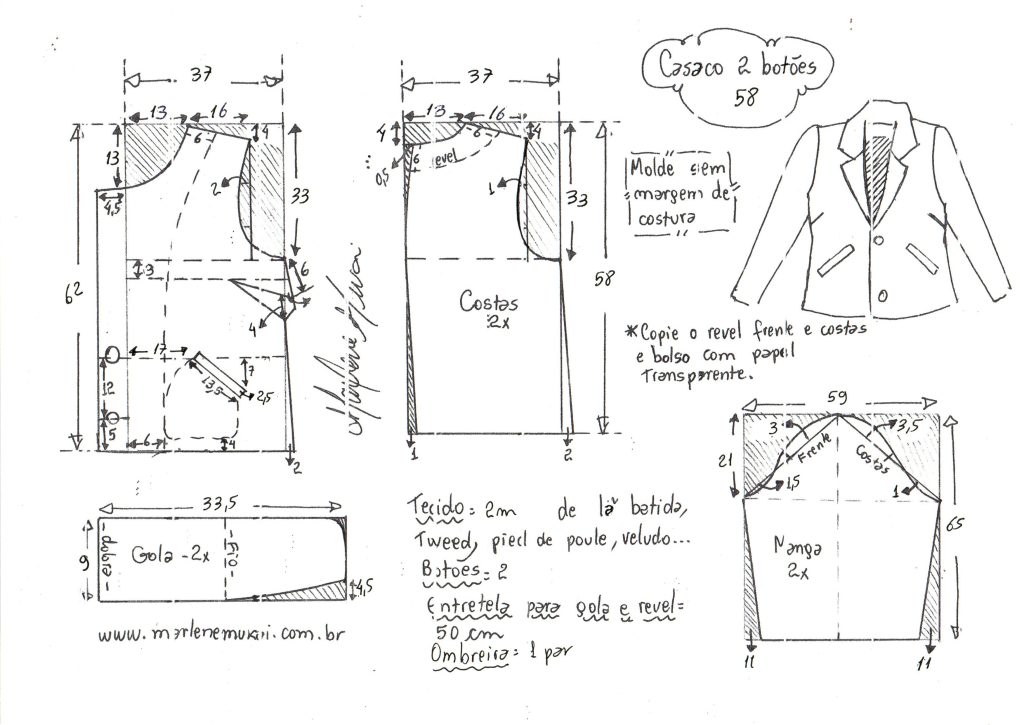 37
13
16
4
6
13
2
33
4,5
3
6
62
4
17
13,5
7
2,5
12
5
6
4
2
37
13
16
4
6
4
6
revel
...
0,5
1
33
58
Costas
2x
1
2
Casaco 2 botões
58
Molde sem
margem de
costura
*Copie o revel frente e costas
e bolso com papel
Transparente.
59
3
3,5
21
Frente
Costas
1,5
1
65
Manga
2x
11
11
33,5
9
dobra
Gola - 2x
Fio
4,5
www.marlenemukai.com.br
Tecido = 2m de lã batida,
Tweed, pied de poule, veludo...
Botões = 2
Entretela para gola e revel =
50 cm
Ombreira = 1 par